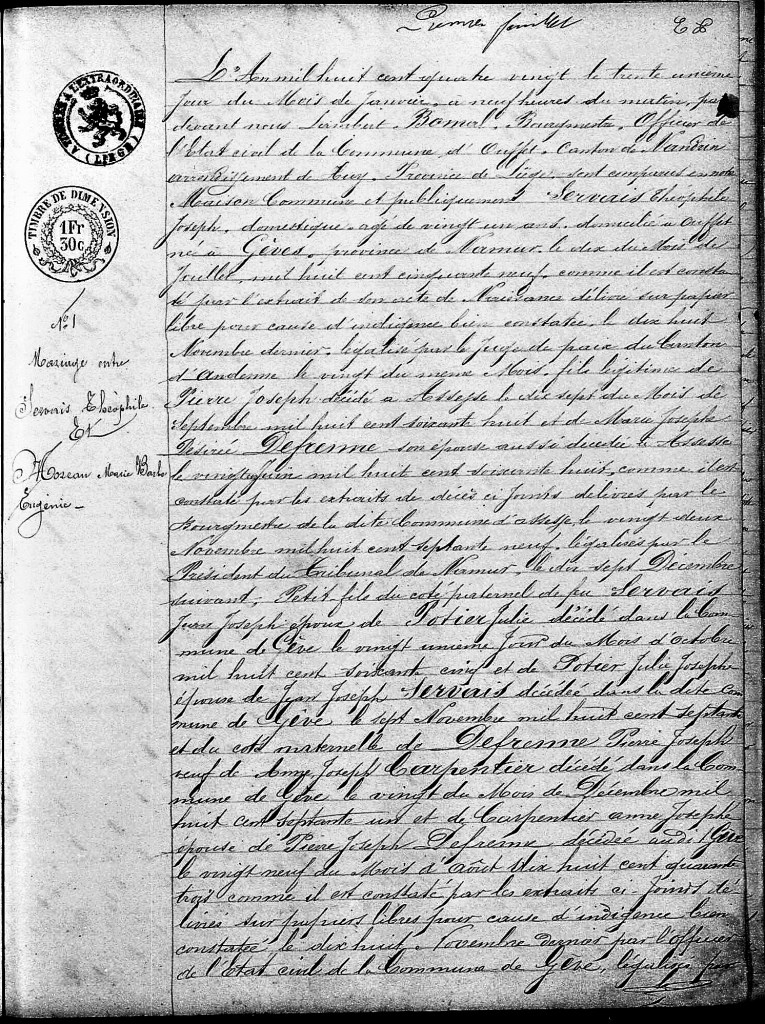 Premier feuillet
L'An mil huit cent quatre vingt le trente unieme
Jour du Mois de Janvier, à neuf heures du matin, par
devant nous Lambert Bomal, Bourgmestre, Officier de
l'Etat civil de la Commune d'Ouffet, Canton de Nandrin
arrondissement de Huy, Province de Liège, sont comparus en notre
Maison Commune et publiquement Servais Théophile
Joseph, domestique, agé de vingt un ans, domicilié à Ouffet
né à Gèves, province de Namur, le dix du Mois de
Juillet, mil huit cent cinquante neuf, comme il est consta
té par l'extrait de son acte de Naissance délivré sur papier
libre pour cause d'indigence bien constatée, le dix huit
Novembre dernier, légalisé par le Juge de paix du Canton
d'Andenne le vingt du meme Mois, fils légitime de
Pierre Joseph décédé à Assesse le dix sept du Mois de
Septembre mil huit cent soixante huit et de Marie Josephe
Désirée Defrenne son épouse aussi décédée à Assesse
le vingt juin mil huit cent soixante huit, comme il est
constaté par les extraits de décès ci Joints délivrés par le
Bourgmestre de la dite Commune d'assesse, le vingt deux
Novembre mil huit cent septante neuf, légalisés par le
Président du Tribunal de Namur, le dix sept Décembre
suivant, Petit fils du coté paternel de feu Servais
Jean Joseph époux de Potier Julie décédé dans la Com
mune de Gève le vingt unieme Jour du Mois d'Octobre
mil huit cent soixante cinq et de Potier Julie Josephe
épouse de Jean Joseph Servais décédée dans la dite Com
mune de Gève le sept Novembre mil huit cent septante
et du coté maternelle de Defrenne Pierre Joseph
veuf de Anne Joseph Carpentier décédé dans la Com
mune de Gève le vingt du Mois de Décembre mil
huit cent septante un et de Carpentier anne Josephe
épouse de Pierre Joseph Defrenne décédée au dit Gève
le vingt neuf du Mois d'août dix huit cent quarante
trois comme il est constaté par les extraits ci-Joints dé
livrés sur papiers libres pour cause d'indigence bien
constatée, le dix huit Novembre dernier par l'officier
de l'Etat civil de la Commune de Gève, légalisés par
TIMBRE A L'EXTRAORDINAIRE
(LIEGE)
TIMBRE DE DIMENSION
1Fr
30c
N° 1
Mariage entre
Servais Théophile
Et
Hozeau Marie Barbe
Eugénie